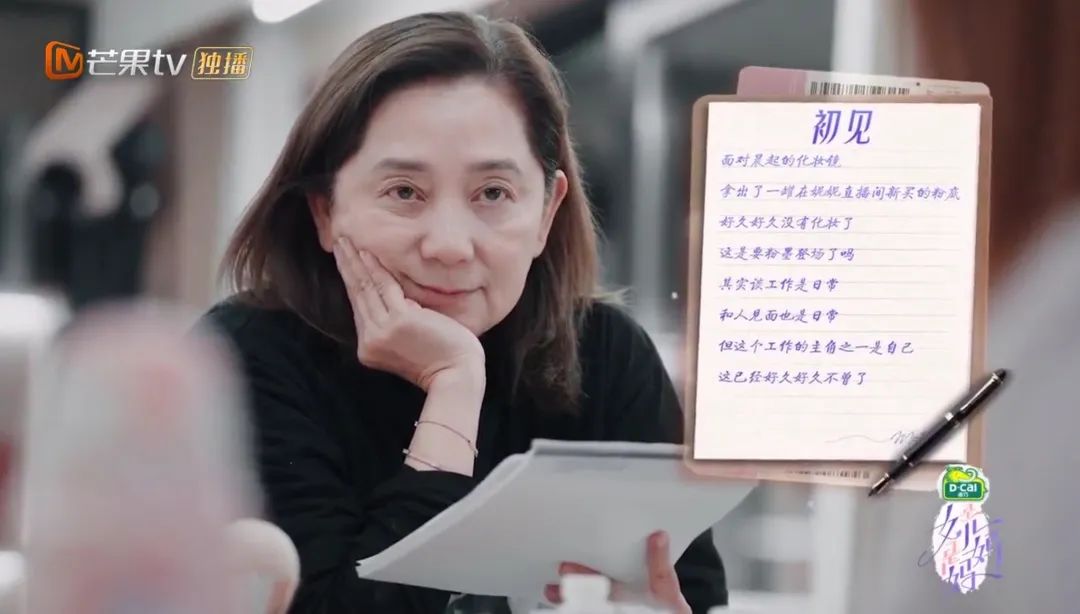 芒果tv 独播
初见
面对晨起的化妆镜
拿出了一罐在妮妮直播间新买的粉底
好久好久没有化妆了
这是要粉墨登场了吗
其实谈工作是日常
和人见面也是日常
但这个工作的主角之一是自己
这已经好久好久不曾了
D·Cal